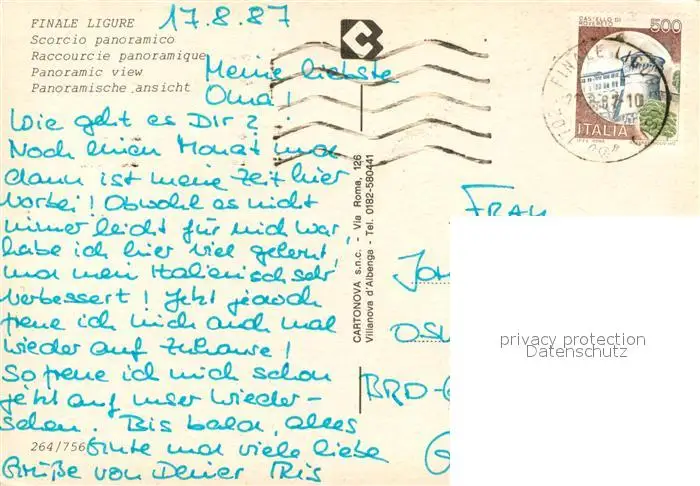 17.8.87
FINALE LIGURE
Scorcio panoramico
Raccourcie panoramique
Panoramic view
Panoramische ansicht
Meine liebste
Oma!
Wie geht es Dir?
Noch einen Monat und
dann ist meine Zeit hier
vorbei! Obwohl es nicht
immer leicht für mich war,
habe ich hier viel gelernt
und mein Italienisch sehr
verbessert! Jetzt jedoch
freue ich mich auch mal
wieder auf Zuhause!
So freue ich mich schon
jetzt auf unser Wieder-
sehen. Bis bald, alles
Gute und viele liebe
Grüße von Deiner Iris
264/756
CARTONOVA s.n.c. - Via Roma, 126
Villanova d'Albenga - Tel. 0182-580441
CASTELLO DI
ROVERETO
500
ITALIA
FINALE LIG
FRAU
BRD-
privacy protection
Datenschutz